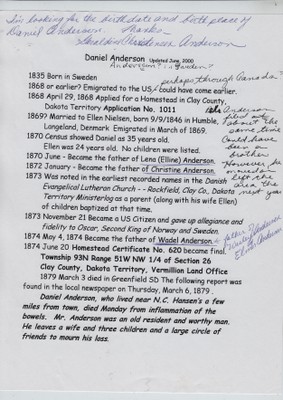 I'm looking for the birthdate and birth place of
Daniel Anderson. Thanks -
Geraldine Christensen Anderson
Daniel Anderson Updated June, 2000
Andersson? in Sweden?
1835 Born in Sweden
perhaps through Canada?
1868 or earlier? Emigrated to the US, could have come earlier.
1868 April 29, 1868 Applied for a Homestead in Clay County,
Dakota Territory Application No. 1011
1869? Married to Ellen Nielsen, born 9/9/1846 in Humble,
Langeland, Denmark Emigrated in March of 1869.
1870 Census showed Daniel as 35 years old.
Ellen was 24 years old. No children were listed.
1870 June - Became the father of Lena (Elline) Anderson.
1872 January - Became the father of Christine Anderson.
1873 Was noted in the earliest recorded names in the Danish
Evangelical Lutheran Church -- Rockfield, Clay Co., Dakota
Territory Ministerlog as a parent (along with his wife Ellen)
of children baptized at that time.
Anderson
filed at
about the
same time
Could have
been a
brother
However he
moved or
left the
area the
next year
1873 November 21 Became a US Citizen and gave up allegiance and
fidelity to Oscar, Second King of Norway and Sweden.
1874 May 4, 1874 Became the father of Wadel Anderson.
father of Anderson
1874 June 20 Homestead Certificate No. 620 became final.
Township 93N Range 51W NW 1/4 of Section 26
Clay County, Dakota Territory, Vermillion Land Office
1879 March 3 died in Greenfield SD The following report was
found in the local newspaper on Thursday, March 6, 1879.
Daniel Anderson, who lived near N.C. Hansen's a few
miles from town, died Monday from inflammation of the
bowels. Mr. Anderson was an old resident and worthy man.
He leaves a wife and three children and a large circle of
friends to mourn his loss.